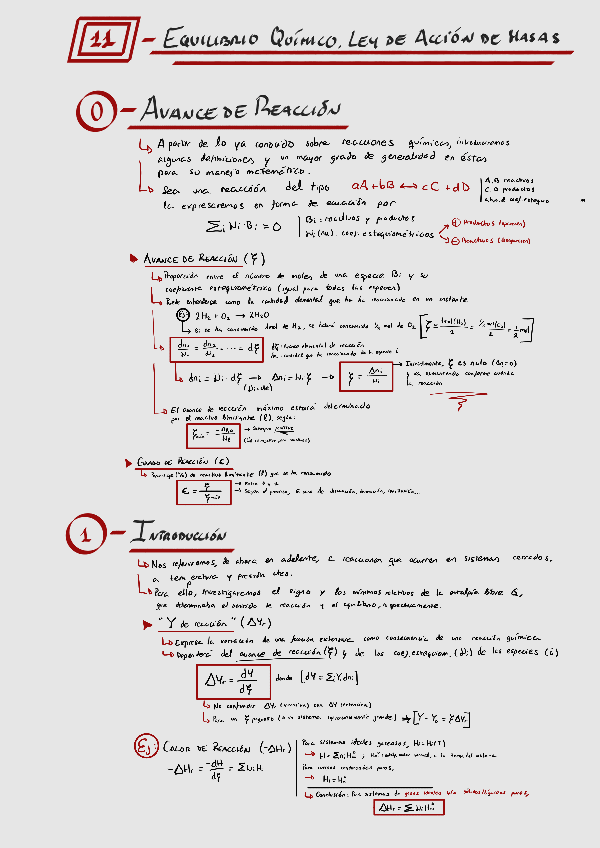 11 - EQUILIBRIO QUÍMICO. LEY DE ACCIÓN DE MASAS
0 - AVANCE DE REACCIÓN
A partir de lo ya conocido sobre reacciones químicas, introduciremos
algunas definiciones y un mayor grado de generalidad en éstas
para su manejo matemático.
Sea una reacción del tipo aA+bB ↔ cC+dD
A,B reactivos
C,D productos
la expresaremos en forma de ecuación por
Σi νi·Bi = 0
Bi: reactivos y productos
νi (nu): coef. estequiométricos
⊕ Productos
⊖ Reactivos
AVANCE DE REACCIÓN (ξ)
Proporción entre el número de moles de una especie Bi y su
coeficiente estequiométrico (igual para todas las especies)
Puede entenderse como la cantidad elemental que ha reaccionado en un instante
Ej: 2H₂ + O₂ → 2H₂O
Si se ha consumido 1mol de H₂, se habrá consumido ½ mol de O₂
dn₁/ν₁ = dn₂/ν₂ ..... = dξ
dξ: avance elemental de reacción
dni = νi·dξ → Δni = νi·ξ → ξ = Δni/νi
Inicialmente, ξ es nulo (Δn=0)
va aumentando conforme avanza
la reacción
ξ
El avance de reacción máximo estará determinado
por el reactivo limitante (R), según:
Siempre positivo
GRADO DE REACCIÓN (ε)
Porcentaje (%) de reactivo limitante (R) que se ha consumido
Entre 0 y 1
Según el proceso, ε será de disociación, formación, ionización...
1 - INTRODUCCIÓN
Nos referiremos, de ahora en adelante, a reacciones que ocurren en sistemas cerrados,
a temperatura y presión ctes.
Para ello, investigaremos el signo y los mínimos relativos de la entalpía libre G,
que determinaba el sentido de reacción y el equilibrio, respectivamente.
"Y de reacción" (ΔYr)
Expresa la variación de una función extensiva como consecuencia de una reacción química
Dependerá del avance de reacción (ξ) y de los coef. estequiom. (νi) de las especies (i)
ΔYr = dY/dξ donde [dY = Σi Yi dni]
No confundir ΔYr (intensiva) con ΔY (extensiva)
Para un ξ pequeño (o un sistema suficientemente grande) ⇒ [Y - Y₀ = ξΔYr]
Ej: CALOR DE REACCIÓN (-ΔHr)
-ΔHr = -dH/dξ = Σ νi Hi
Para sistemas ideales gaseosos, Hi = Hi(T)
Conclusión: Para sistemas de gases ideales y/o sólidos/líquidos puros,